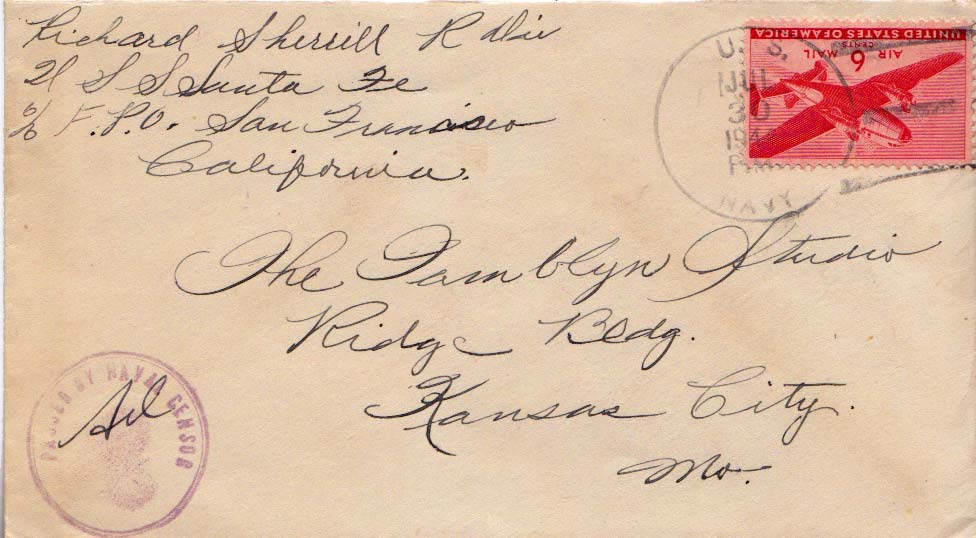 Richard Sherrill R
U S S Santa Fe
℅ F.P.O. San Francisco
California.
U. S.
JUL
30
1944
P.M.
NAVY
UNITED STATES OF AMERICA
6 CENTS
AIR MAIL
The Tamblyn Studio
Ridge Bldg.
Kansas City.
Mo.
PASSED BY NAVAL CENSOR